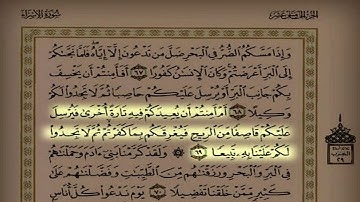 الجزء الخامس عشر
سورة الإسراء
وَإِذَا مَسَّكُمُ ٱلضُّرُّ فِي ٱلْبَحْرِ ضَلَّ مَن تَدْعُونَ إِلَّآ إِيَّاهُ فَلَمَّا نَجَّىٰكُمْ
إِلَى ٱلْبَرِّ أَعْرَضْتُمْ وَكَانَ ٱلْإِنسَٰنُ كَفُورًا ٦٧ أَفَأَمِنتُمْ أَن يَخْسِفَ
بِكُمْ جَانِبَ ٱلْبَرِّ أَوْ يُرْسِلَ عَلَيْكُمْ حَاصِبًا ثُمَّ لَا تَجِدُوا۟ لَكُمْ
وَكِيلًا ٦٨ أَمْ أَمِنتُمْ أَن يُعِيدَكُمْ فِيهِ تَارَةً أُخْرَىٰ فَيُرْسِلَ
عَلَيْكُمْ قَاصِفًا مِّنَ ٱلرِّيحِ فَيُغْرِقَكُم بِمَا كَفَرْتُمْ ثُمَّ لَا تَجِدُوا۟
لَكُمْ عَلَيْنَا بِهِۦ تَبِيعًا ٦٩ وَلَقَدْ كَرَّمْنَا بَنِىٓ ءَادَمَ وَحَمَلْنَٰهُمْ
فِي ٱلْبَرِّ وَٱلْبَحْرِ وَرَزَقْنَٰهُم مِّنَ ٱلطَّيِّبَٰتِ وَفَضَّلْنَٰهُمْ عَلَىٰ
كَثِيرٍ مِّمَّنْ خَلَقْنَا تَفْضِيلًا ٧٠ يَوْمَ نَدْعُوا۟ كُلَّ أُنَاسٍۭ
الحزب
٢٩